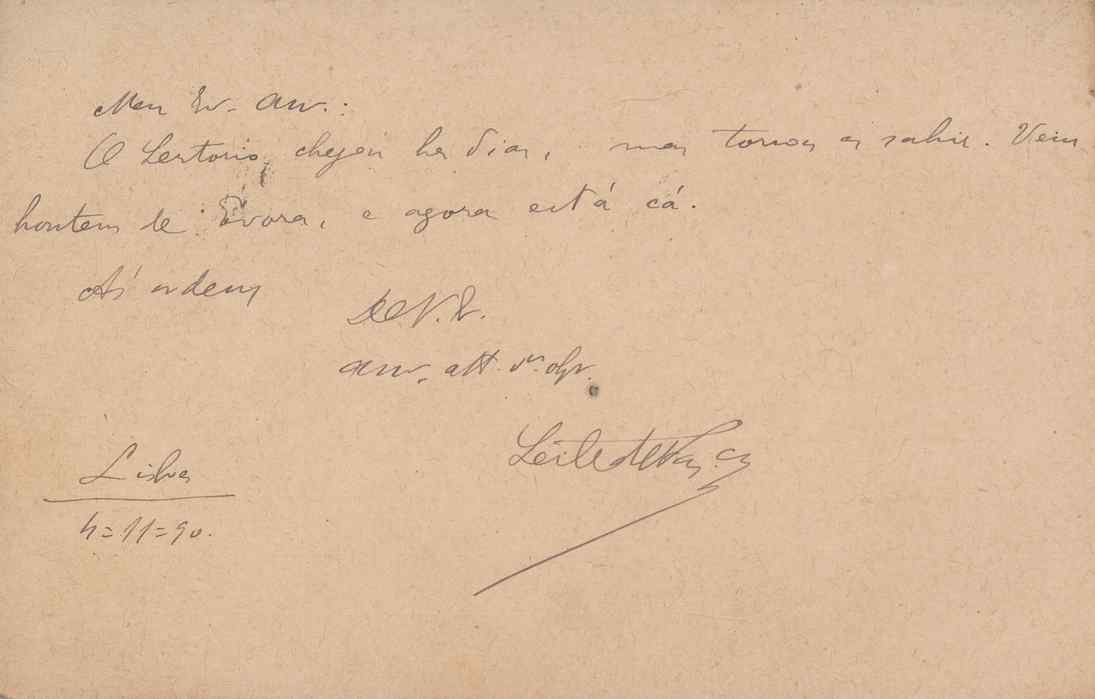 Meu Ex. Am.:
O Sertorio chegou ha dias, mas tornou a sahir. Veiu
hontem de Évora, e agora está cá.
Ás ordens
De V. Ex.
am. att. v.ᵒʳ obr.
Leite de Vas.ᶜᵒˢ
Lisboa
4=11=90.